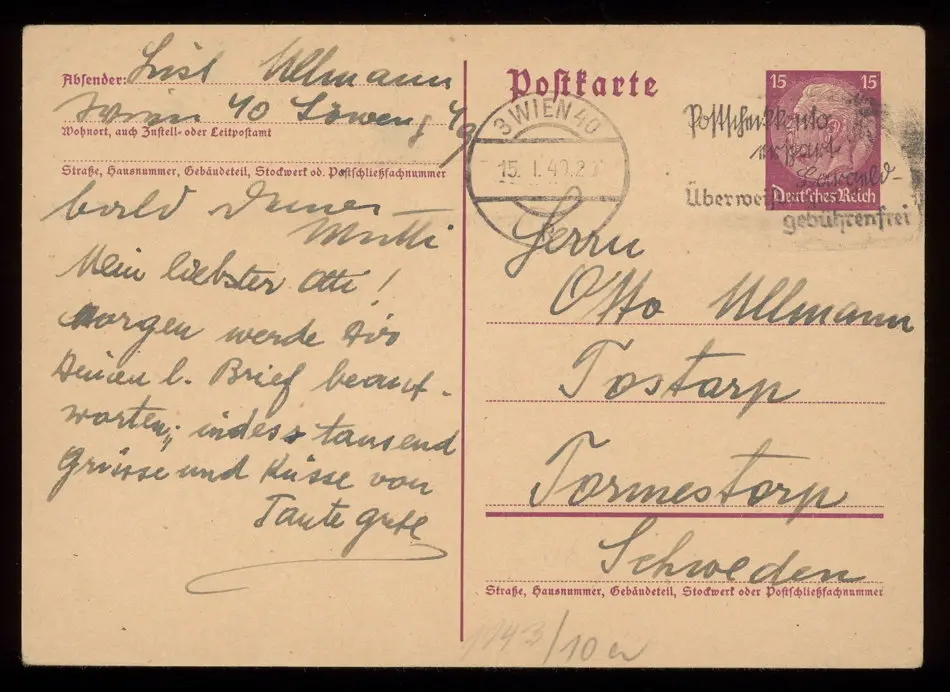 Absender: Lisl Ullmann
Wien 40 Löweng 49
Wohnort, auch Zustell- oder Leitpostamt
Straße, Hausnummer, Gebäudeteil, Stockwerk od. Postschließfachnummer
bald Deine
Mutti
Mein liebster Otti!
Morgen werde Dir
Deinen l. Brief beant-
worten; indess tausend
Grüsse und Küsse von
Tante Grete
Postkarte
15 15
Deutsches Reich
3 WIEN 40
15. I. 40. 2
Postscheckkonto
erspart
Bargeld-
Überwei
gebührenfrei
Herrn
Otto Ullmann
Tostarp
Tormestorp
Schweden
Straße, Hausnummer, Gebäudeteil, Stockwerk oder Postschließfachnummer
1143/10 er